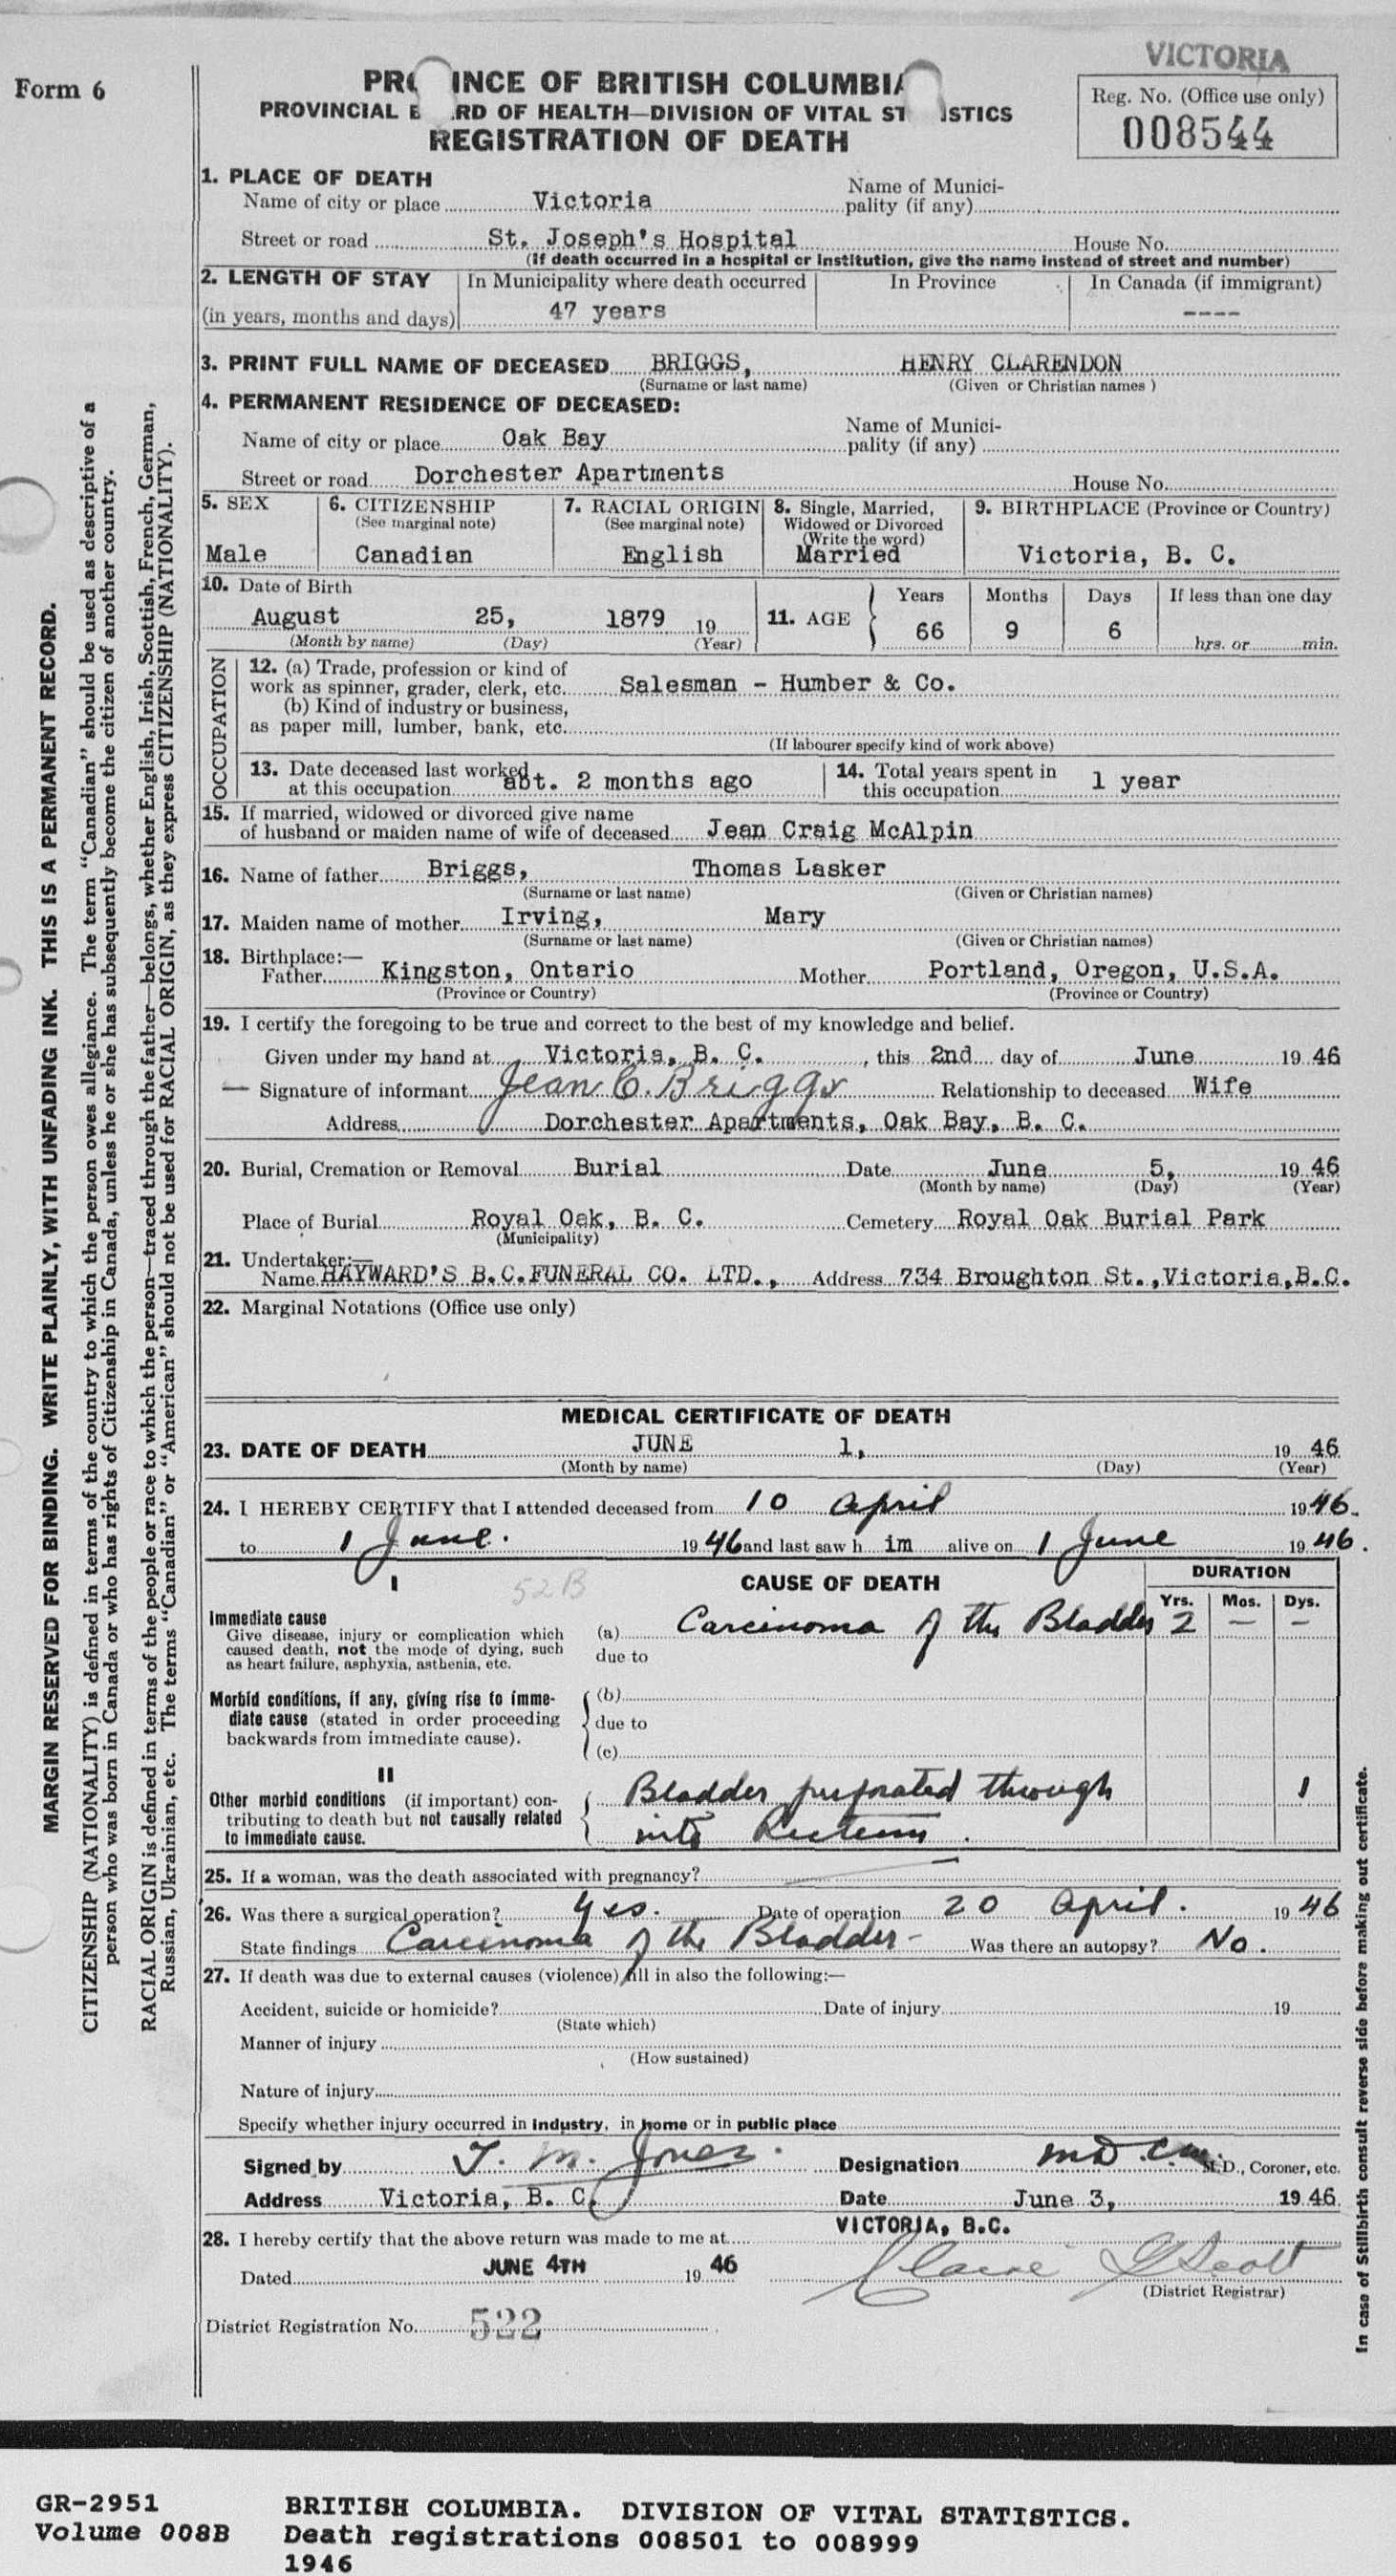 VICTORIA
Form 6
PRO INCE OF BRITISH COLUMBIA
PROVINCIAL B RD OF HEALTH—DIVISION OF VITAL ST ISTICS
REGISTRATION OF DEATH
Reg. No. (Office use only)
008544
1. PLACE OF DEATH
Name of city or place Victoria Name of Munici-
pality (if any)
Street or road St. Joseph's Hospital House No.
(If death occurred in a hospital or institution, give the name instead of street and number)
2. LENGTH OF STAY In Municipality where death occurred In Province In Canada (if immigrant)
(in years, months and days) 47 years ----
3. PRINT FULL NAME OF DECEASED BRIGGS, HENRY CLARENDON
(Surname or last name) (Given or Christian names )
4. PERMANENT RESIDENCE OF DECEASED:
Name of city or place Oak Bay Name of Munici-
pality (if any)
Street or road Dorchester Apartments House No.
5. SEX 6. CITIZENSHIP 7. RACIAL ORIGIN 8. Single, Married, 9. BIRTHPLACE (Province or Country)
(See marginal note) (See marginal note) Widowed or Divorced
(Write the word)
Male Canadian English Married Victoria, B. C.
10. Date of Birth Years Months Days If less than one day
August 25, 1879 19 11. AGE 66 9 6 hrs. or min.
(Month by name) (Day) (Year)
OCCUPATION
12. (a) Trade, profession or kind of
work as spinner, grader, clerk, etc. Salesman - Humber & Co.
(b) Kind of industry or business,
as paper mill, lumber, bank, etc.
(If labourer specify kind of work above)
13. Date deceased last worked 14. Total years spent in
at this occupation abt. 2 months ago this occupation 1 year
15. If married, widowed or divorced give name
of husband or maiden name of wife of deceased Jean Craig McAlpin
16. Name of father Briggs, Thomas Lasker
(Surname or last name) (Given or Christian names)
17. Maiden name of mother Irving, Mary
(Surname or last name) (Given or Christian names)
18. Birthplace:—
Father Kingston, Ontario Mother Portland, Oregon, U.S.A.
(Province or Country) (Province or Country)
19. I certify the foregoing to be true and correct to the best of my knowledge and belief.
Given under my hand at Victoria, B. C. , this 2nd day of June 19 46
— Signature of informant Jean C. Briggs Relationship to deceased Wife
Address Dorchester Apartments, Oak Bay, B. C.
20. Burial, Cremation or Removal Burial Date June 5, 19 46
(Month by name) (Day) (Year)
Place of Burial Royal Oak, B. C. Cemetery Royal Oak Burial Park
(Municipality)
21. Undertaker:—
Name HAYWARD'S B.C.FUNERAL CO. LTD., Address 734 Broughton St.,Victoria,B.C.
22. Marginal Notations (Office use only)
MEDICAL CERTIFICATE OF DEATH
23. DATE OF DEATH JUNE 1, 19 46
(Month by name) (Day) (Year)
24. I HEREBY CERTIFY that I attended deceased from 10 April 1946.
to 1 June. 19 46 and last saw h im alive on 1 June 19 46.
I 52B CAUSE OF DEATH DURATION
Yrs. Mos. Dys.
Immediate cause
Give disease, injury or complication which (a) Carcinoma of the Bladder 2 — —
caused death, not the mode of dying, such due to
as heart failure, asphyxia, asthenia, etc.
Morbid conditions, if any, giving rise to imme- (b)
diate cause (stated in order proceeding due to
backwards from immediate cause). (c)
II
Other morbid conditions (if important) con- Bladder perforated through 1
tributing to death but not causally related
to immediate cause. into Rectum.
25. If a woman, was the death associated with pregnancy? —
26. Was there a surgical operation? Yes. Date of operation 20 April. 19 46
State findings Carcinoma of the Bladder - Was there an autopsy? No.
27. If death was due to external causes (violence) fill in also the following:—
Accident, suicide or homicide? Date of injury 19
(State which)
Manner of injury
(How sustained)
Nature of injury
Specify whether injury occurred in industry, in home or in public place
Signed by T. M. Jones. Designation MD. C.M. M.D., Coroner, etc.
Address Victoria, B. C. Date June 3, 19 46
28. I hereby certify that the above return was made to me at VICTORIA, B.C.
Dated JUNE 4TH 19 46 Claire G Scott
(District Registrar)
District Registration No. 522
MARGIN RESERVED FOR BINDING. WRITE PLAINLY, WITH UNFADING INK. THIS IS A PERMANENT RECORD.
CITIZENSHIP (NATIONALITY) is defined in terms of the country to which the person owes allegiance. The term "Canadian" should be used as descriptive of a
person who was born in Canada or who has rights of Citizenship in Canada, unless he or she has subsequently become the citizen of another country.
RACIAL ORIGIN is defined in terms of the people or race to which the person—traced through the father—belongs, whether English, Irish, Scottish, French, German,
Russian, Ukrainian, etc. The terms "Canadian" or "American" should not be used for RACIAL ORIGIN, as they express CITIZENSHIP (NATIONALITY).
In case of Stillbirth consult reverse side before making out certificate.
GR-2951 BRITISH COLUMBIA. DIVISION OF VITAL STATISTICS.
Volume 008B Death registrations 008501 to 008999
1946